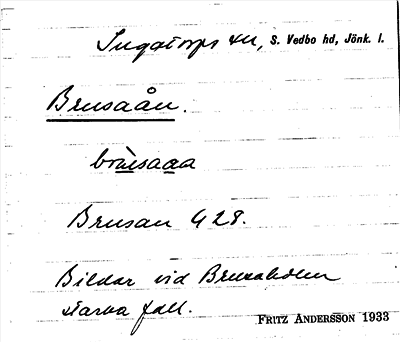 Ingatorps sn, S. Vedbo hd, Jönk. l.
Brusaån.
Brusaån G 28.
Bildar vid Brusaholm
starka fall.
FRITZ ANDERSSON 1933